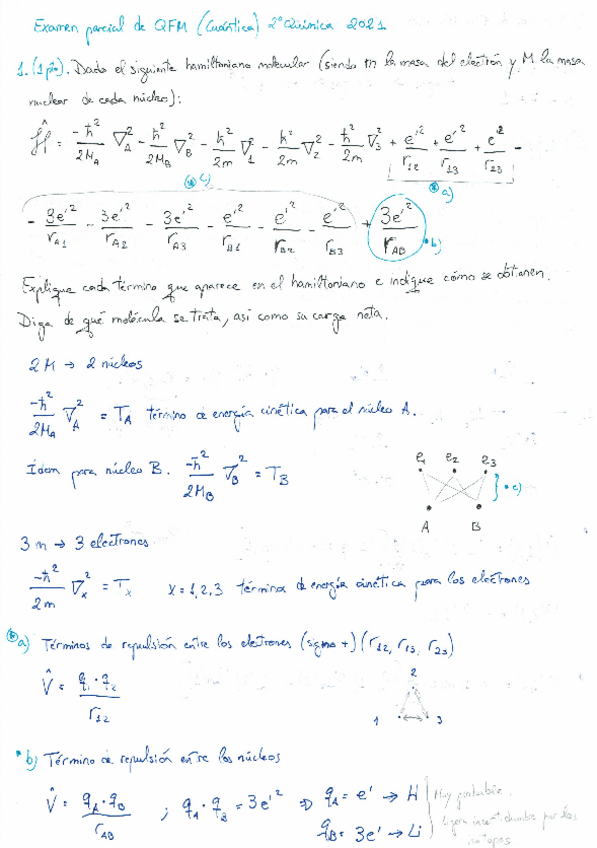 Examen parcial de QFM (Cuántica) 2º Química 2021
1. (1 pto). Dado el siguiente hamiltoniano molecular (siendo m la masa del electrón y M la masa
nuclear de cada núcleo):
Ĥ = -ħ²/2M_A ∇²_A - ħ²/2M_B ∇²_B - ħ²/2m ∇²_1 - ħ²/2m ∇²_2 - ħ²/2m ∇²_3 + e'²/r_12 + e'²/r_13 + e'²/r_23 -
* c) * a)
- 3e'²/r_A1 - 3e'²/r_A2 - 3e'²/r_A3 - e'²/r_B1 - e'²/r_B2 - e'²/r_B3 + 3e'²/r_AB * b)
Explique cada término que aparece en el hamiltoniano e indique cómo se obtienen.
Diga de qué molécula se trata, así como su carga neta.
2M → 2 núcleos
-ħ²/2M_A ∇²_A = T_A término de energía cinética para el núcleo A.
e1 e2 e3
Ídem para núcleo B. -ħ²/2M_B ∇²_B = T_B
* c)
A B
3 m → 3 electrones
-ħ²/2m ∇²_x = T_x x = 1, 2, 3 término de energía cinética para los electrones
* a) Términos de repulsión entre los electrones (signo +) (r12, r13, r23)
V̂ = q1 · q2/r12
2
1 3
* b) Término de repulsión entre los núcleos
V̂ = q_A · q_B/r_AB ; q_A · q_B = 3e'² ⇒ q_A = e' → H
q_B = 3e' → Li
Muy probable.
Ligera incertidumbre por los
isótopos